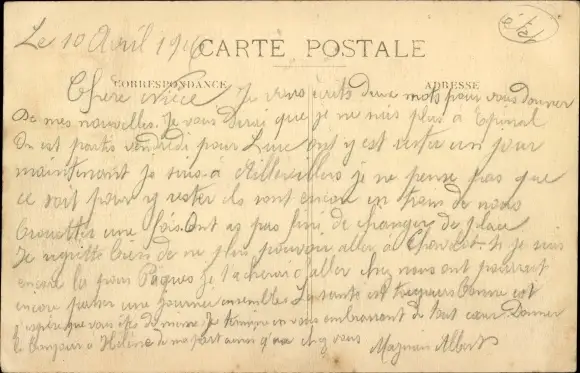 état
Le 10 Avril 19
CARTE POSTALE
CORRESPONDANCE
ADRESSE
Chère Nièce Je vous écrits deux mots pour vous donner
de mes nouvelles. Je vous dirai que je ne suis plus à Epinal
On est partis vendredi pour Lure ont y est resté un jour
maintenant je suis à Aillevillers je ne pense pas que
ce soit pour y rester ils sont encore en train de nous
une fois. Ont as pas fini de changer de place
Je regrette bien de ne plus pouvoir aller à si je suis
encore la pour Pâques je d'aller chez nous ont pourrait
encore passer une journée ensembles La santé est toujours bonne et
j'espère que vous êtes de même Je termine en vous embrassant de tout cœur Donner
le bonjour à Hélène de ma part ainsi qu'a chez vous
Albert